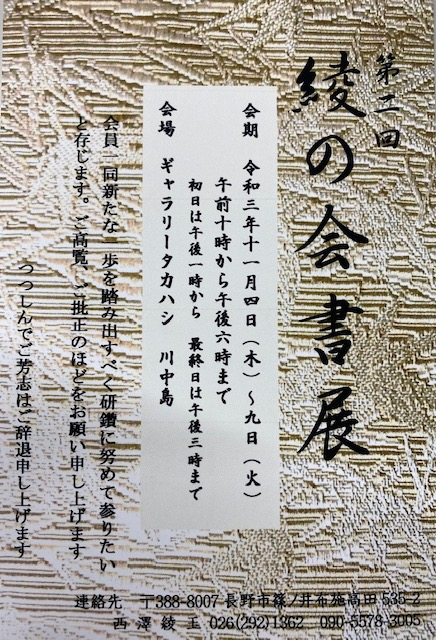 第二回
綾の会書展
会期 令和三年十一月四日（木）～九日（火）
午前十時から午後六時まで
初日は午後一時から 最終日は午後三時まで
会場 ギャラリータカハシ 川中島
会員一同新たな一歩を踏み出すべく研鑽に努めて参りたい
と存じます。ご高覧、ご批正のほどをお願い申し上げます
つつしんでご芳志はご辞退申し上げます
連絡先 〒388-8007 長野市篠ノ井布施高田 535-2
西澤綾玉 026(292)1362 090-5578-3005